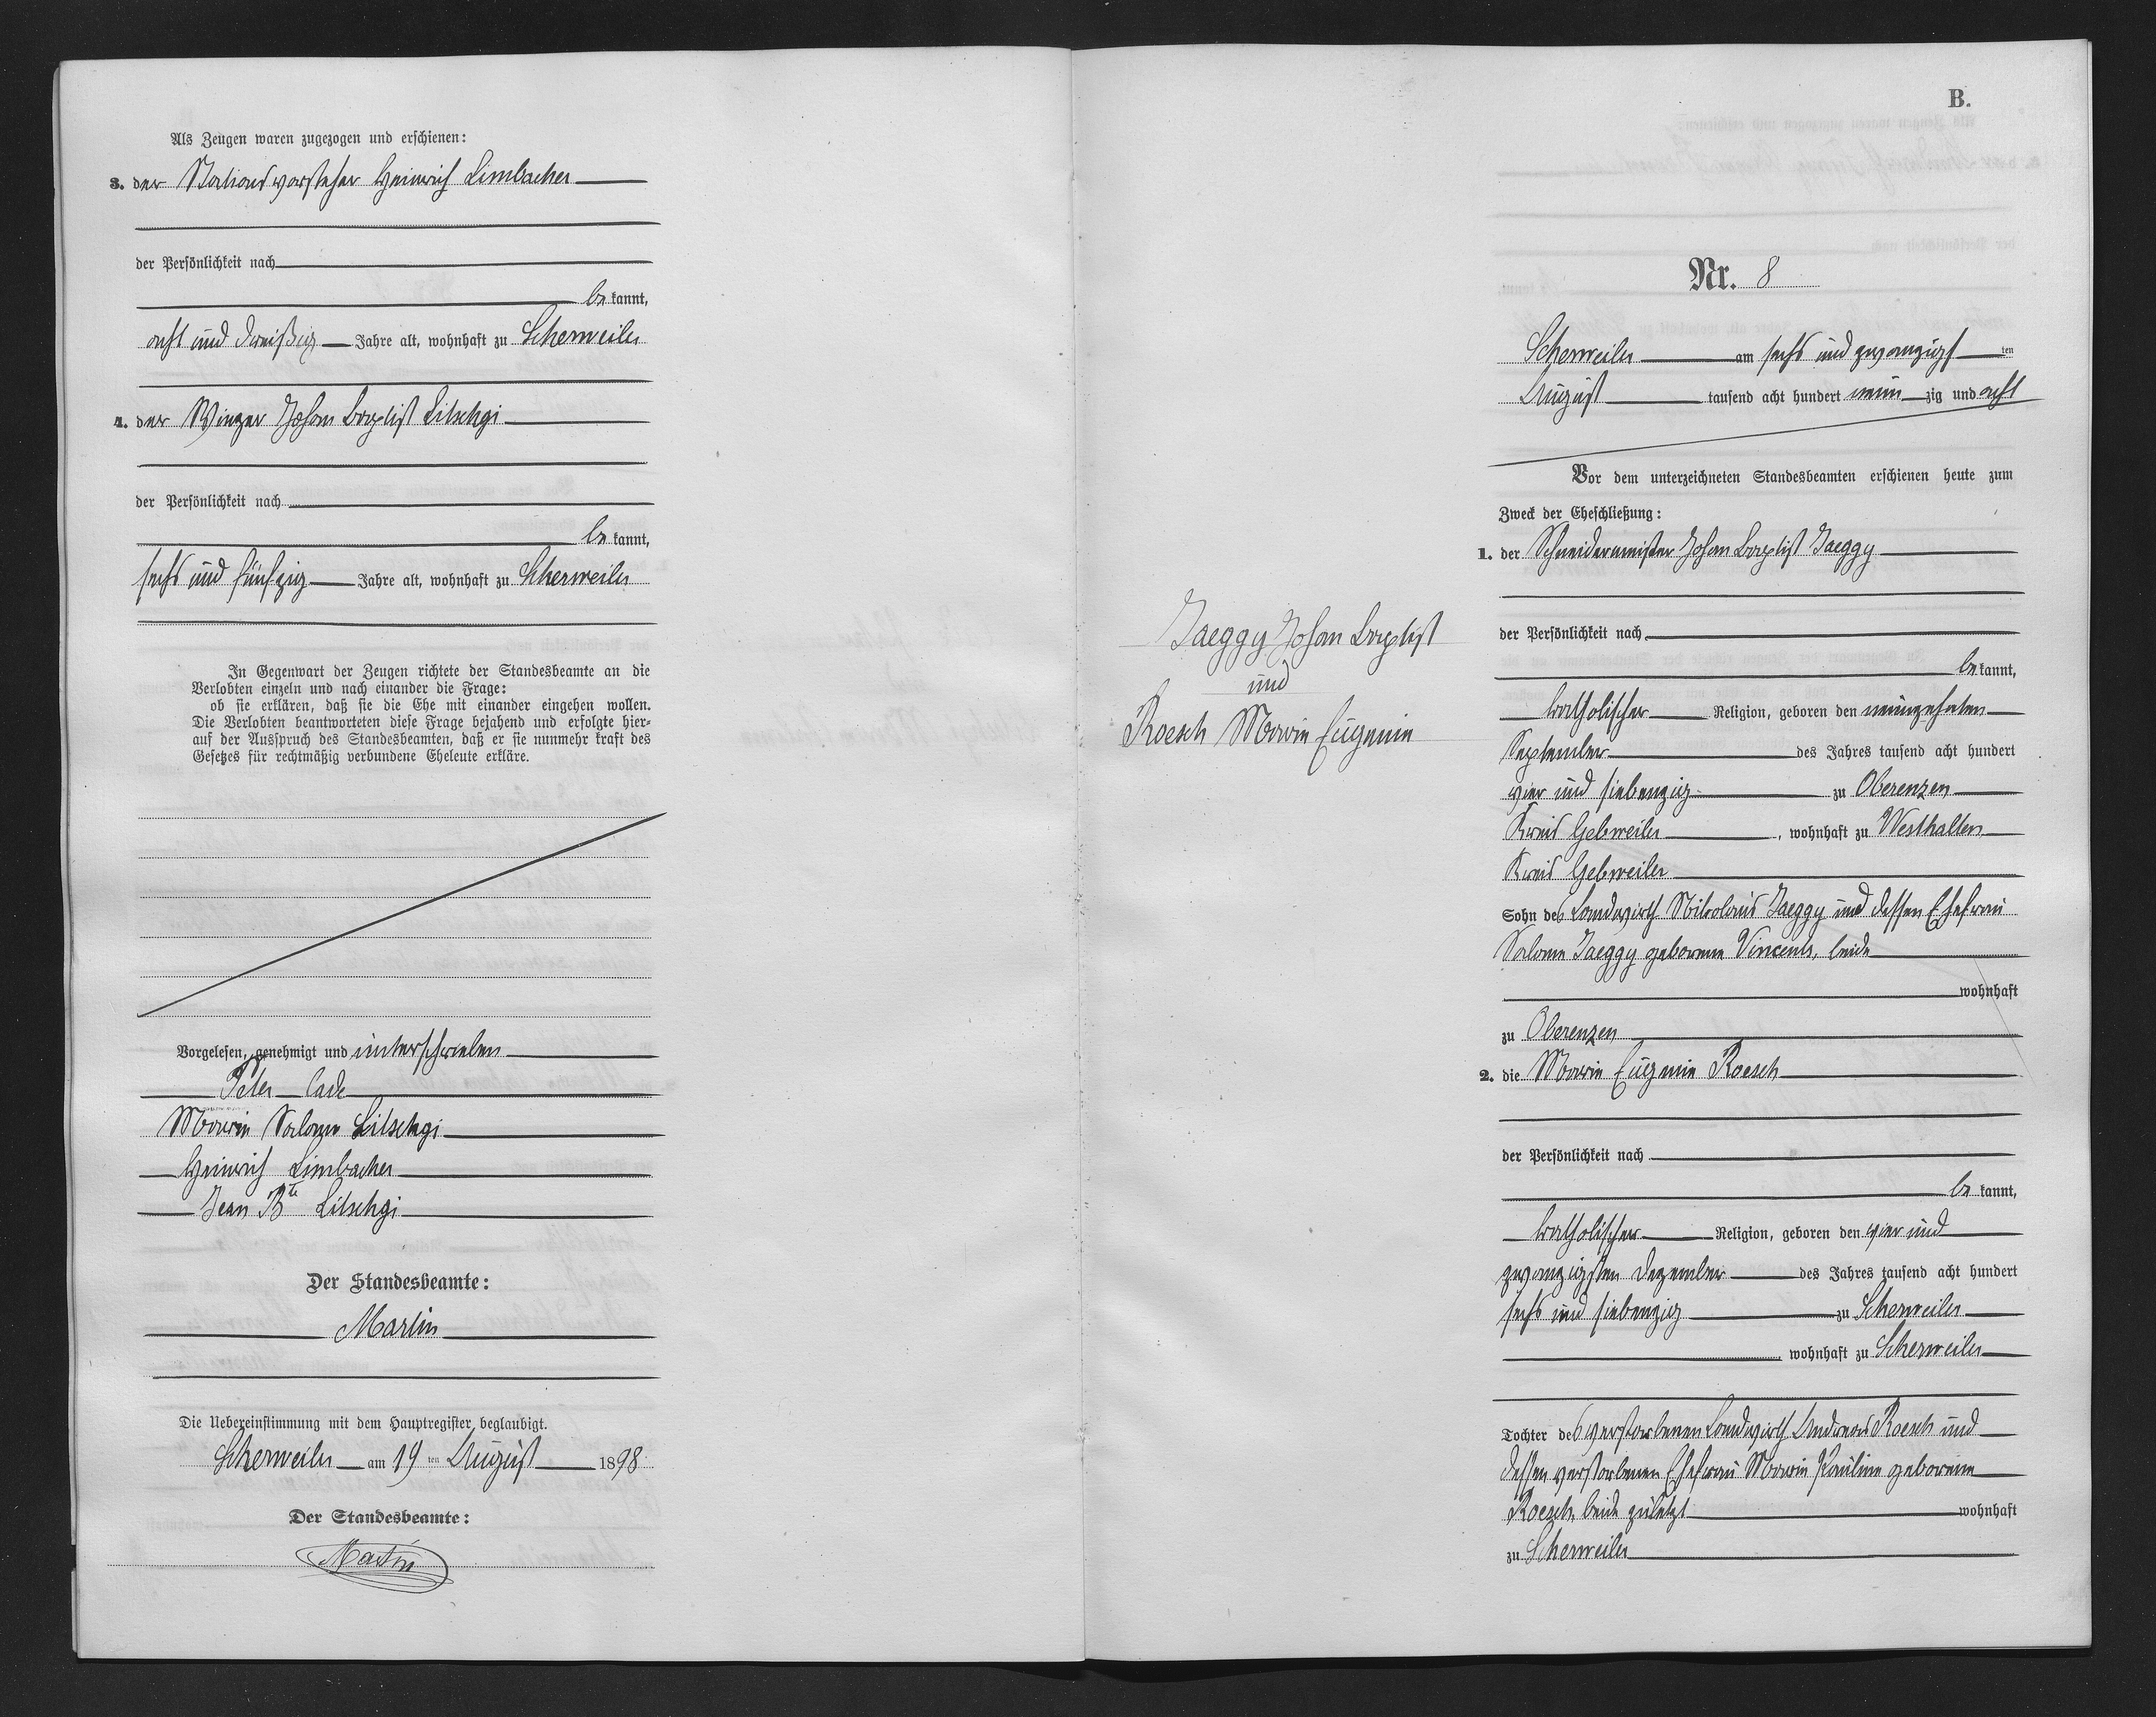 Als Zeugen waren zugezogen und erschienen:
3. der Stationsvorsteher Heinrich Limbacher
der Persönlichkeit nach
be kannt,
acht und dreißig Jahre alt, wohnhaft zu Scherweiler
4. der Winzer Johan Baptist Litschgi
der Persönlichkeit nach
be kannt,
sechs und fünfzig Jahre alt, wohnhaft zu Scherweiler
In Gegenwart der Zeugen richtete der Standesbeamte an die
Verlobten einzeln und nach einander die Frage:
ob sie erklären, daß sie die Ehe mit einander eingehen wollen.
Die Verlobten beantworteten diese Frage bejahend und erfolgte hier-
auf der Ausspruch des Standesbeamten, daß er sie nunmehr kraft des
Gesetzes für rechtmäßig verbundene Eheleute erkläre.
Vorgelesen, genehmigt und unterschrieben
Peter
Marie Salome Litschgi
Heinrich Limbacher
Jean Bte Litschgi
Der Standesbeamte:
Martin
Die Uebereinstimmung mit dem Hauptregister beglaubigt.
Scherweiler am 19 ten August 1898
Der Standesbeamte:
Martin
B.
Nr. 8
Scherweiler am sechs und zwanzigst ten
August tausend acht hundert neun zig und acht
Vor dem unterzeichneten Standesbeamten erschienen heute zum
Zweck der Eheschließung:
1. der Schneidermeister Johan Baptist Jaeggy
der Persönlichkeit nach
be kannt,
katholischer Religion, geboren den neunzehnten
September des Jahres tausend acht hundert
vier und siebenzig zu Oberenzen
Kreis Gebweiler, wohnhaft zu Westhalten
Kreis Gebweiler
Sohn des Landwirth Nikolaus Jaeggy und dessen Ehefrau
Salome Jaeggy geborene Vincents, beide
wohnhaft
zu Oberenzen
2. die Marie Eugenie Roesch
der Persönlichkeit nach
be kannt,
katholischer Religion, geboren den vier und
zwanzigsten Dezember des Jahres tausend acht hundert
sechs und siebenzig zu Scherweiler
, wohnhaft zu Scherweiler
Tochter des verstorbenen Landwirth Andreas Roesch und
dessen verstorbenen Ehefrau Marie Pauline geborene
Roesch, beide zuletzt wohnhaft
zu Scherweiler
Jaeggy Johan Baptist
und
Roesch Marie Eugenie